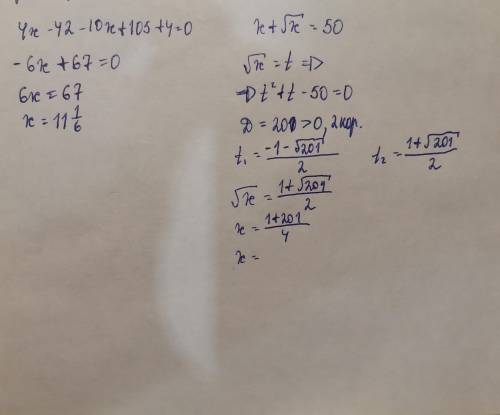 4x - 42 - 10x + 105 + 4 = 0
-6x + 67 = 0
6x = 67
x = 11 1/6
x + √x = 50
√x = t ⇒
⇒ t² + t - 50 = 0
D = 201 > 0, 2 кор.
t₁ = (-1 - √201)/2   t₂ = (1 + √201)/2
√x = (1 + √201)/2
x = (1 + 201)/4
x =